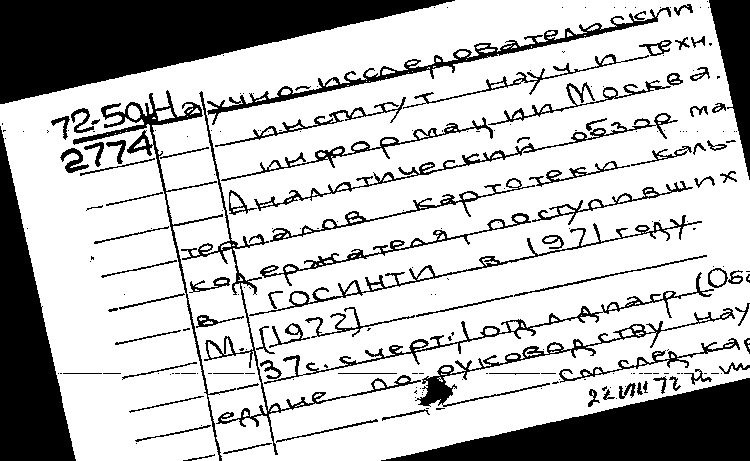 72-50
2774
Научно-исследовательский
институт науч. и техн.
информации. Москва.
Аналитический обзор ма
териалов картотеки каль-
кодержателя, поступивших
в ГОСИНТИ в 1971 году.
М., [1972].
37с. с черт.; 1 отд. л. диагр. (Объ
едние по руководству нау
см. след. кар
22 VIII 72